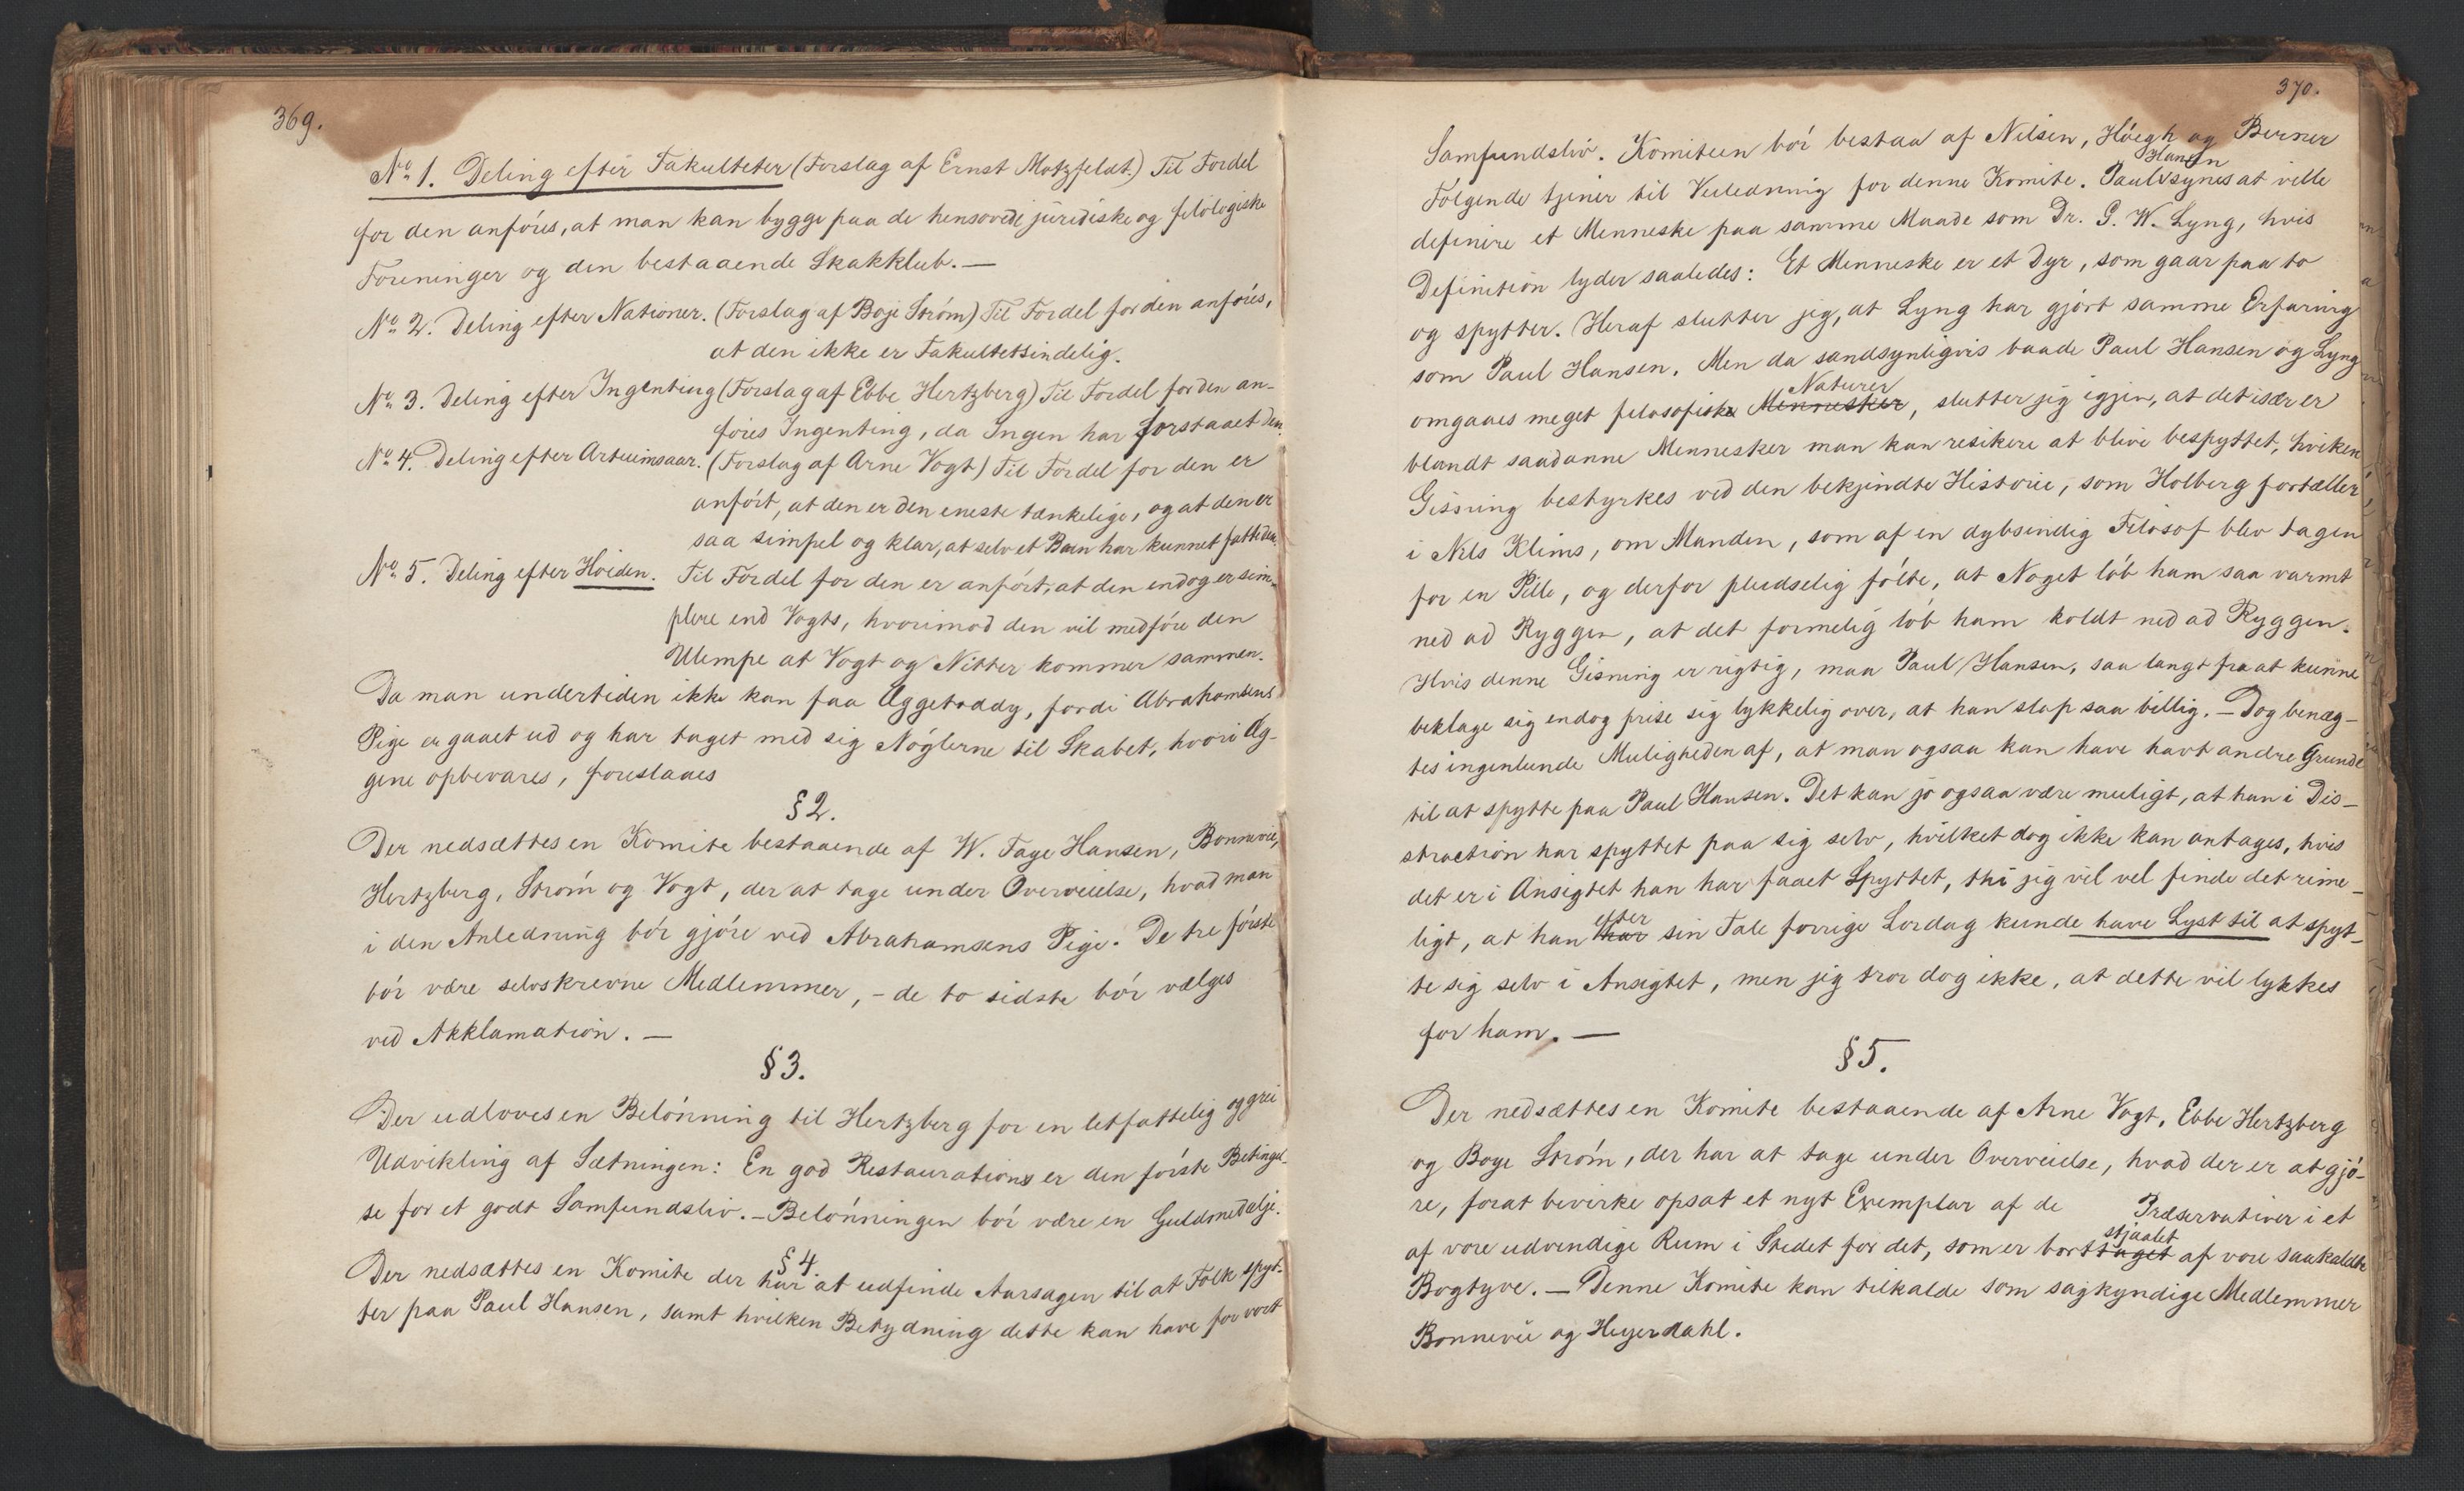 369.
No 1. Deling efter Fakulteter (Forslag af Ernst Motzfeldt.) Til Fordel
for den anføres, at man kan bygge paa de hensovede juridiske og filologiske
Foreninger og den bestaaende Skakklub. —
No 2. Deling efter Nationer. (Forslag af Boje Strøm) Til Fordel for den anføres,
at den ikke er Fakultetsindelig.
No 3. Deling efter Ingenting (Forslag af Ebbe Hertzberg) Til Fordel for den an-
føres Ingenting, da Ingen har forstaaet den.
No 4. Deling efter Artiumsaar. (Forslag af Arne Vogt) Til Fordel for den er
anført, at den er den eneste tænkelige, og at den er
saa simpel og klar, at selv et Barn har kunnet fatte den.
No 5. Deling efter Høiden. Til Fordel for den er anført, at den endog er sim-
plere end Vogts, hvorimod den vil medføre den
Ulempe at Vogt og Nitter kommer sammen.
Da man undertiden ikke kan faa Æggetoddy, fordi Abrahamsens
Pige er gaaet ud og har taget med sig Nøglerne til Skabet, hvori Æg-
gene opbevares, foreslaaes
§ 2.
Der nedsættes en Komite bestaaende af W. Fage Hansen, Bonnevie,
Hertzberg, Strøm og Vogt, der at tage under Overveielse, hvad man
i den Anledning bør gjøre ved Abrahamsens Pige. De tre første
bør være selvskrevne Medlemmer, - de to sidste bør vælges
ved Akklamation. —
§ 3.
Der udloves en Belønning til Hertzberg for en letfattelig og grei
Udvikling af Sætningen: En god Restaurations er den første Betingel-
se for et godt Samfundsliv. — Belønningen bør være en Guldmedalje.
§ 4.
Der nedsættes en Komite der har at udfinde Aarsagen til at Folk spyt-
ter paa Paul Hansen, samt hvilken Betydning dette kan have for vort
370.
Samfundsliv. Komiteen bør bestaa af Nilsen, Høegh og Berner
Hansen
Følgende tjener til Veiledning for denne Komite. Paul synes at ville
definere et Menneske paa samme Maade som Dr. G. W. Lyng, hvis
Definition lyder saaledes: Et Menneske er et Dyr, som gaar paa to
og spytter. Heraf slutter jeg, at Lyng har gjort samme Erfaring
som Paul Hansen. Men da sandsynligvis baade Paul Hansen og Lyng
Naturer
omgaaes meget filosofiske Mennesker, slutter jeg igjen, at det især er
blandt saadanne Mennesker man kan resikere at blive bespyttet, hvilken
Gisning bestyrkes ved den bekjendte Historie, som Holberg fortæller
i Nils Klims, om Manden, som af en dybsindig Filosof blev tagen
for en Pæle, og derfor pludselig følte, at Noget løb ham saa varmt
ned ad Ryggen, at det formelig løb ham koldt ned ad Ryggen.
Hvis denne Gisning er rigtig, maa Paul Hansen, saa langt fra at kunne
beklage sig endog prise sig lykkelig over, at han slap saa billig. — Dog benæg-
tes ingenlunde Muligheden af, at man ogsaa kan have havt andre Grunde
til at spytte paa Paul Hansen. Det kan jo ogsaa være muligt, at han i Dis-
straction har spyttet paa sig selv, hvilket dog ikke kan antages, hvis
det er i Ansigtet han har faaet Spyttet, thi jeg vil vel finde det rime-
efter
ligt, at han har sin Tale forrige Lørdag kunde have Lyst til at spyt-
te sig selv i Ansigtet, men jeg tror dog ikke, at dette vil lykkes
for ham. —
§ 5.
Der nedsættes en Komite bestaaende af Arne Vogt, Ebbe Hertzberg
og Boye Strøm, der har at tage under Overveielse, hvad der er at gjø-
re, forat bevirke opsat et nyt Exemplar af de Præservativer i et
stjaalet
af vore udvendige Rum i Stedet for det, som er borttaget af vore saakaldte
Bogtyve. — Denne Komite kan tilkalde som sagkyndige Medlemmer
Bonnevie og Heyerdahl.